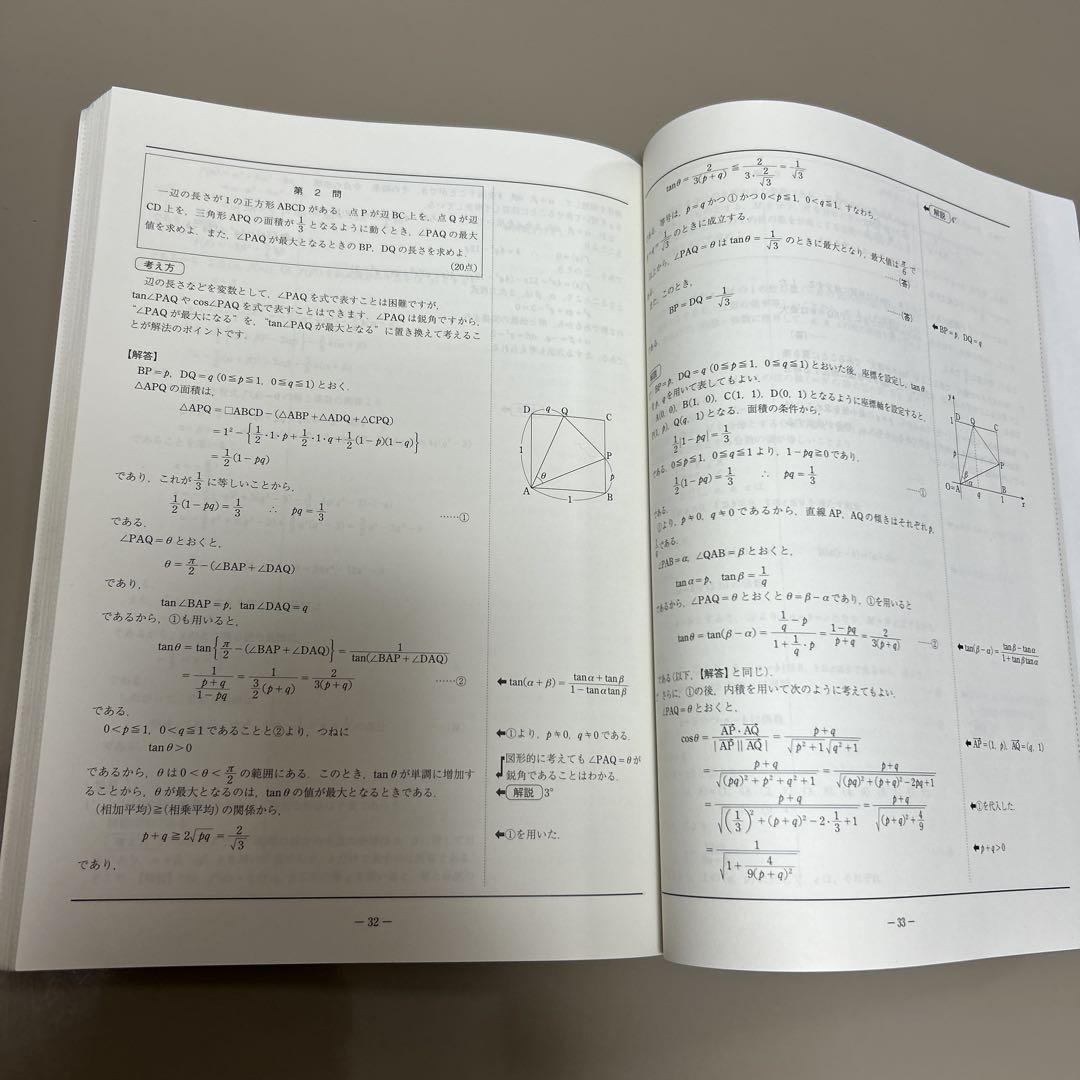 第 2 問
一辺の長さが1の正方形 ABCD がある．点 P が辺 BC 上を，点 Q が辺
CD 上を，三角形 APQ の面積が 1/3 となるように動くとき，∠PAQ の最大
値を求めよ．また，∠PAQ が最大となるときの BP，DQ の長さを求めよ．
(20点)
考え方
辺の長さなどを変数として，∠PAQ を式で表すことは困難ですが，
tan∠PAQ や cos∠PAQ を式で表すことはできます．∠PAQ は鋭角ですから，
“∠PAQ が最大になる” を，“tan∠PAQ が最大となる” に置き換えて考えるこ
とが解法のポイントです．
【解答】
BP=p，DQ=q (0≦p≦1，0≦q≦1) とおく．
△APQ の面積は，
△APQ=□ABCD−(△ABP+△ADQ+△CPQ)
=1²−{1/2・1・p+1/2・1・q+1/2(1−p)(1−q)}
=1/2(1−pq)
であり，これが 1/3 に等しいことから，
1/2(1−pq)=1/3 ∴ pq=1/3 ……①
である．
∠PAQ=θ とおくと，
θ=π/2−(∠BAP+∠DAQ)
であり，
tan∠BAP=p，tan∠DAQ=q
であるから，①も用いると，
tanθ=tan{π/2−(∠BAP+∠DAQ)}=1/tan(∠BAP+∠DAQ)
=1/((p+q)/(1−pq))=1/(3/2(p+q))=2/(3(p+q)) ……②
である．
0<p≦1，0<q≦1 であることと②より，つねに
tanθ>0
であるから，θ は 0<θ<π/2 の範囲にある．このとき，tanθ が単調に増加す
ることから，θ が最大となるのは，tanθ の値が最大となるときである．
(相加平均)≧(相乗平均) の関係から，
p+q≧2√pq=2/√3
であり，
D q Q C
1 P
θ p
A 1 B
⬅tan(α+β)=(tanα+tanβ)/(1−tanαtanβ)
⬅①より，p≠0，q≠0 である．
図形的に考えても ∠PAQ=θ が
鋭角であることはわかる．
⬅解説 3°
⬅①を用いた．
－32－
tanθ=2/(3(p+q))≦2/(3・2/√3)=1/√3
等号は，p=q かつ ① かつ 0<p≦1，0<q≦1，すなわち，
1/√3 のときに成立する．
⬅解説 4°
から，∠PAQ=θ は tanθ=1/√3 のときに最大となり，最大値は π/6 で
……(答)
このとき，
BP=DQ=1/√3 ……(答)
⬅BP=p，DQ=q
である．
BP=p，DQ=q (0≦p≦1，0≦q≦1) とおいた後，座標を設定し，tanθ
p，q を用いて表してもよい．
A(0，0)，B(1，0)，C(1，1)，D(0，1) となるように座標軸を設定すると，
P(1，p)，Q(q，1) となる．面積の条件から，
1/2|1−pq|=1/3
である．0≦p≦1，0≦q≦1 より，1−pq≧0 であり，
1/2(1−pq)=1/3 ∴ pq=1/3 ……①
である．
①より，p≠0，q≠0 であるから，直線 AP，AQ の傾きはそれぞれ p，
である．
∠PAB=α，∠QAB=β とおくと，
tanα=p，tanβ=1/q
であるから，∠PAQ=θ とおくと θ=β−α であり，①を用いると
tanθ=tan(β−α)=(1/q−p)/(1+1/q・p)=(1−pq)/(p+q)=2/(3(p+q)) ……②
である (以下，【解答】と同じ)．
さらに，①の後，内積を用いて次のように考えてもよい．
∠PAQ=θ とおくと，
cosθ=AP・AQ/(|AP||AQ|)=(p+q)/(√(p²+1)√(q²+1))
=(p+q)/√((pq)²+p²+q²+1)=(p+q)/√((pq)²+(p+q)²−2pq+1)
=(p+q)/√((1/3)²+(p+q)²−2・1/3+1)=(p+q)/√((p+q)²+4/9)
=1/√(1+4/(9(p+q)²))
y
D Q C
1
P
β
α
O=A q B
1 x
⬅tan(β−α)=(tanβ−tanα)/(1+tanβtanα)
⬅AP=(1，p)，AQ=(q，1)
⬅①を代入した．
⬅p+q>0
－33－